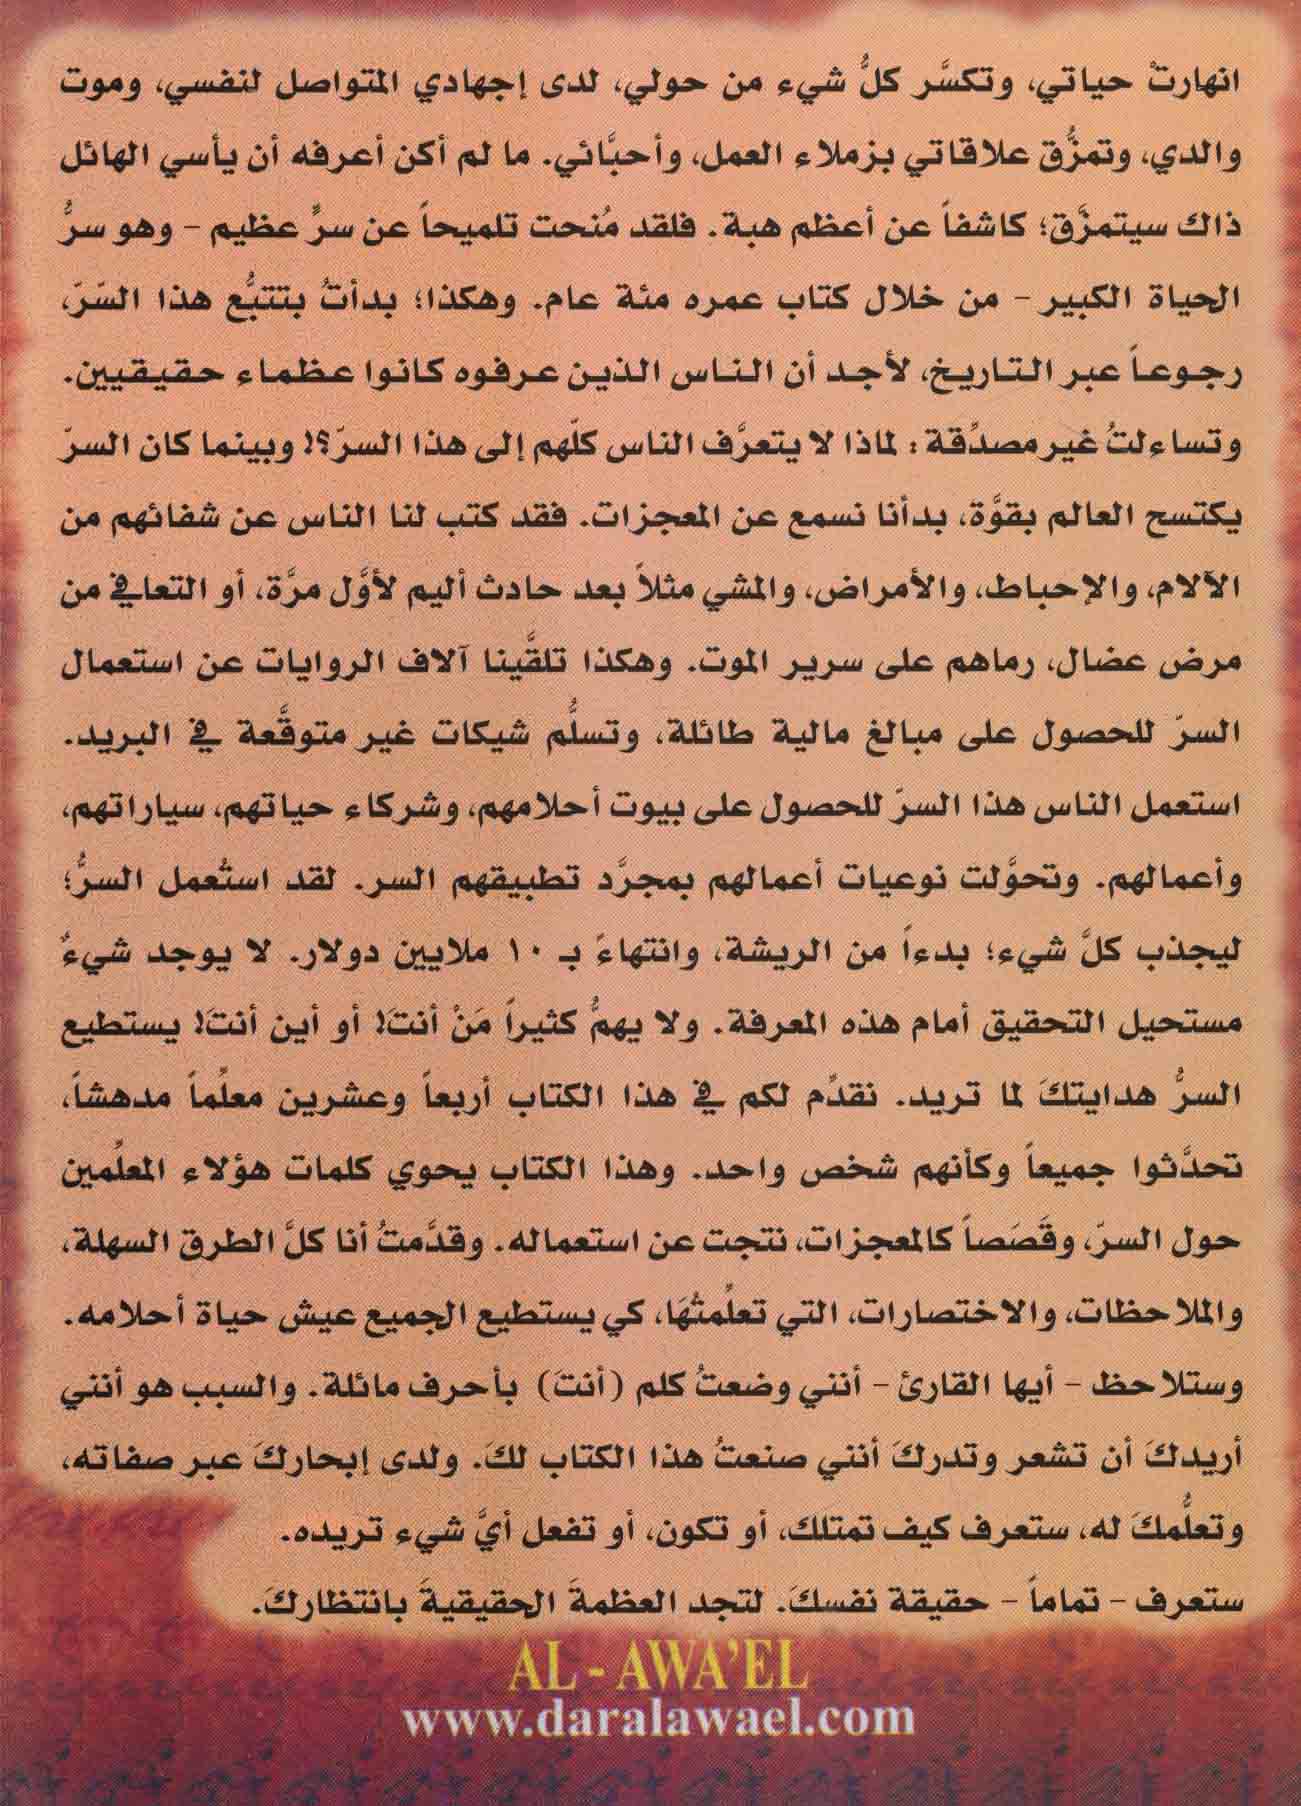 انهارتْ حياتي، وتكسَّر كلُّ شيء من حولي، لدى إجهادي المتواصل لنفسي، وموت
والدي، وتمزُّق علاقاتي بزملاء العمل، وأحبَّائي. ما لم أكن أعرفه أن يأسي الهائل
ذاك سيتمزَّق؛ كاشفاً عن أعظم هبة. فلقد مُنحت تلميحاً عن سرٍّ عظيم - وهو سرُّ
الحياة الكبير - من خلال كتاب عمره مئة عام. وهكذا؛ بدأتُ بتتبُّع هذا السّرّ،
رجوعاً عبر التاريخ، لأجد أن الناس الذين عرفوه كانوا عظماء حقيقيين.
وتساءلتُ غير مصدِّقة : لماذا لا يتعرَّف الناس كلّهم إلى هذا السرّ؟! وبينما كان السرّ
يكتسح العالم بقوَّة، بدأنا نسمع عن المعجزات. فقد كتب لنا الناس عن شفائهم من
الآلام، والإحباط، والأمراض، والمشي مثلاً بعد حادث أليم لأوَّل مرَّة، أو التعافي من
مرض عضال، رماهم على سرير الموت. وهكذا تلقَّينا آلاف الروايات عن استعمال
السرّ للحصول على مبالغ مالية طائلة، وتسلُّم شيكات غير متوقَّعة في البريد.
استعمل الناس هذا السرّ للحصول على بيوت أحلامهم، وشركاء حياتهم، سياراتهم،
وأعمالهم. وتحوَّلت نوعيات أعمالهم بمجرَّد تطبيقهم السر. لقد استُعمل السرُّ؛
ليجذب كلَّ شيء؛ بدءاً من الريشة، وانتهاءً بـ ١٠ ملايين دولار. لا يوجد شيءٌ
مستحيل التحقيق أمام هذه المعرفة. ولا يهمُّ كثيراً مَنْ أنتَ! أو أين أنتَ! يستطيع
السرُّ هدايتكَ لما تريد. نقدِّم لكم في هذا الكتاب أربعاً وعشرين معلِّماً مدهشاً،
تحدَّثوا جميعاً وكأنهم شخص واحد. وهذا الكتاب يحوي كلمات هؤلاء المعلِّمين
حول السرّ، وقَصَصاً كالمعجزات، نتجت عن استعماله. وقدَّمتُ أنا كلَّ الطرق السهلة،
والملاحظات، والاختصارات، التي تعلَّمتُهَا، كي يستطيع الجميع عيش حياة أحلامه.
وستلاحظ - أيها القارئ - أنني وضعتُ كلم (أنتَ) بأحرف مائلة. والسبب هو أنني
أريدكَ أن تشعر وتدركَ أنني صنعتُ هذا الكتاب لكَ. ولدى إبحاركَ عبر صفاته،
وتعلُّمكَ له، ستعرف كيف تمتلك، أو تكون، أو تفعل أيَّ شيء تريده.
ستعرف - تماماً - حقيقة نفسكَ. لتجد العظمةَ الحقيقيةَ بانتظاركَ.
AL - AWA'EL
www.daralawael.com